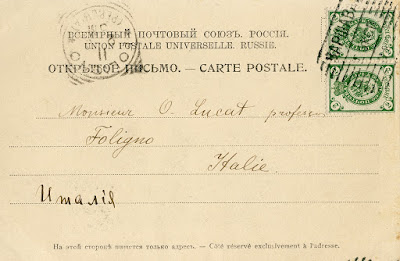 ВСЕМІРНЫЙ ПОЧТОВЫЙ СОЮЗЪ. РОССІЯ.
UNION POSTALE UNIVERSELLE. RUSSIE.
ОТКРЫТОЕ ПИСЬМО. — CARTE POSTALE.
Monsieur O. Lucat professeur
Foligno
Italie.
Италія
На этой сторонѣ пишется только адресъ. — Côté réservé exclusivement à l'adresse.